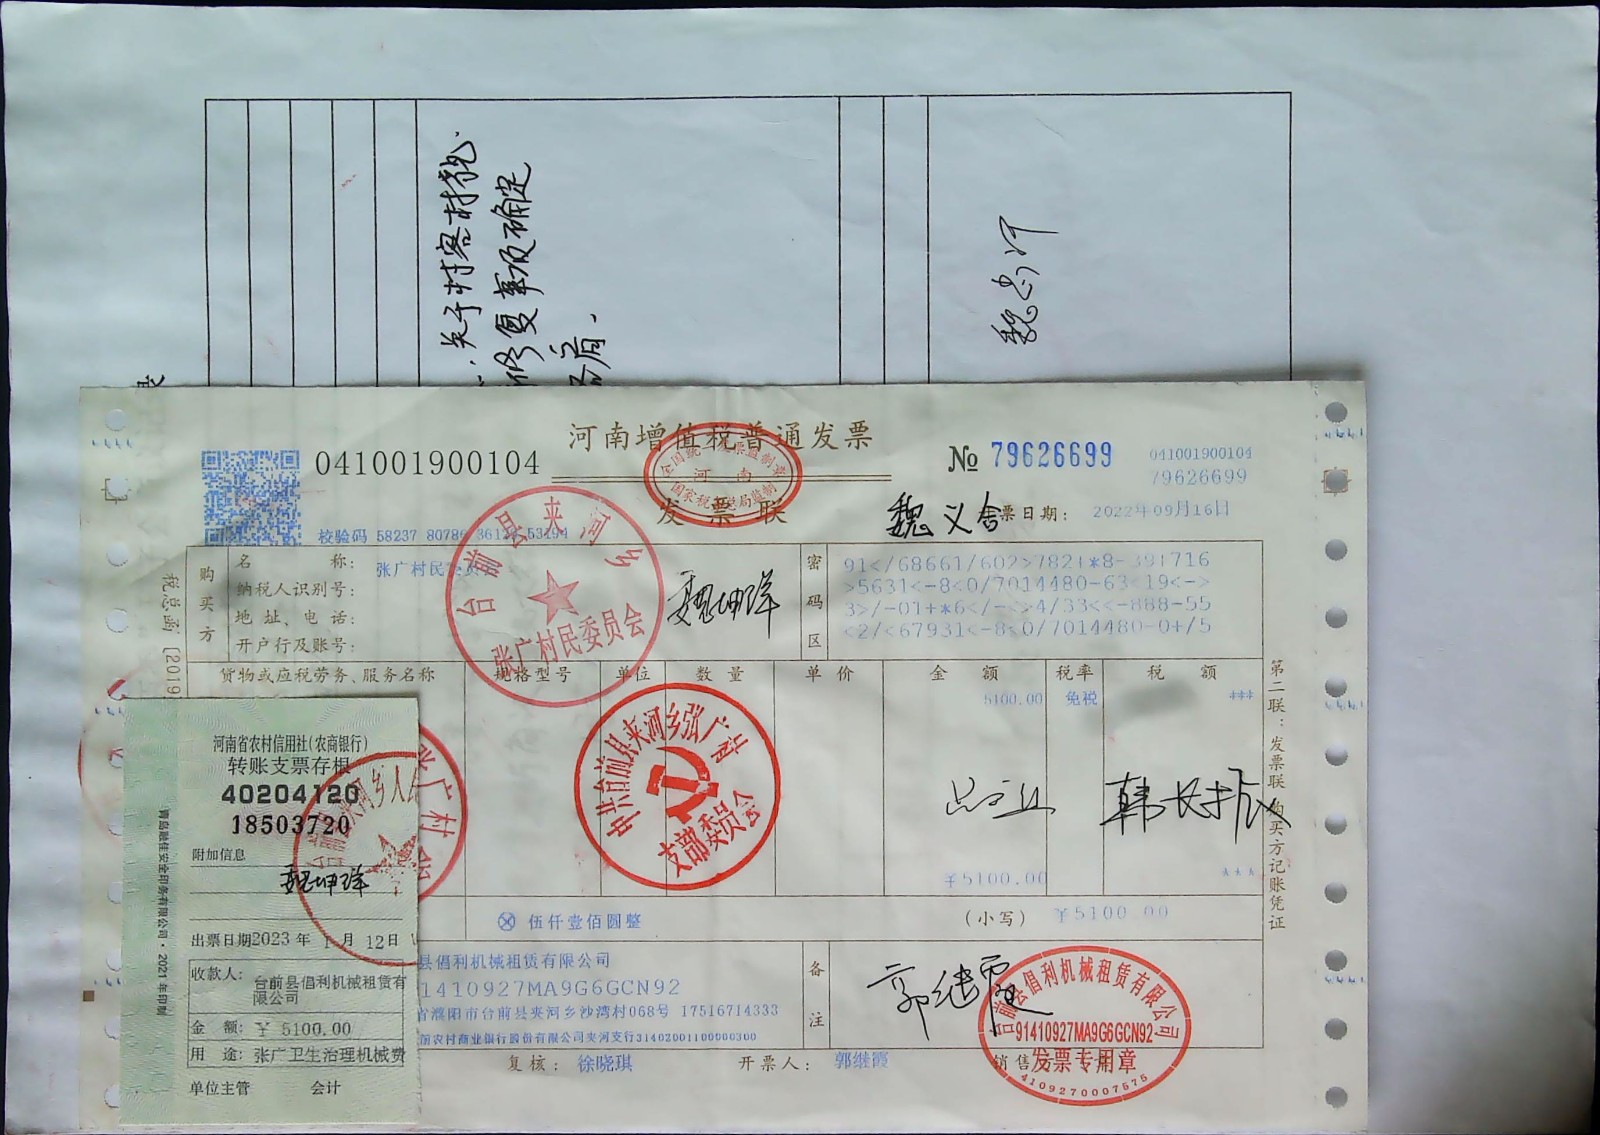 关于村容村貌
修复事项确定
河南增值税普通发票
041001900104
№ 79626699
041001900104
79626699
全国统一发票监制章
河南
国家税务总局监制
发票联
魏义舍
票日期: 2022年09月16日
校验码 58237 80786
台前县夹河乡
张广村民委员会
购买方
名称: 张广村民委员会
纳税人识别号:
地址、电话:
开户行及账号:
魏坤洋
密码区
91</68661/602>782+*8-391716
>5631<-8<0/7014480-63<19<->
3>/-01+*6</-<>4/33<<-888-55
<2/<67931<-8<0/7014480-0+/5
税总函 [2019]
货物或应税劳务、服务名称 规格型号 单位 数量 单价 金额 税率 税额
5100.00 免税 ***
中共台前县夹河乡张广村
支部委员会
韩长振
¥5100.00 ***
⊗ 伍仟壹佰圆整 (小写) ¥5100.00
县倡利机械租赁有限公司
1410927MA9G6GCN92
省濮阳市台前县夹河乡沙湾村068号 17516714333
前农村商业银行股份有限公司夹河支行31402001100000300
备注
郭继霞
台前县倡利机械租赁有限公司
91410927MA9G6GCN92
发票专用章
4109270007575
复核: 徐晓琪 开票人: 郭继霞 销售
第二联:发票联 购买方记账凭证
河南省农村信用社(农商银行)
转账支票存根
40204120
18503720
附加信息
魏坤洋
出票日期2023年1月12日
收款人: 台前县倡利机械租赁有
限公司
金额: ¥ 5100.00
用途: 张广卫生治理机械费
单位主管 会计
青岛融佳安全印务有限公司·2021年印制